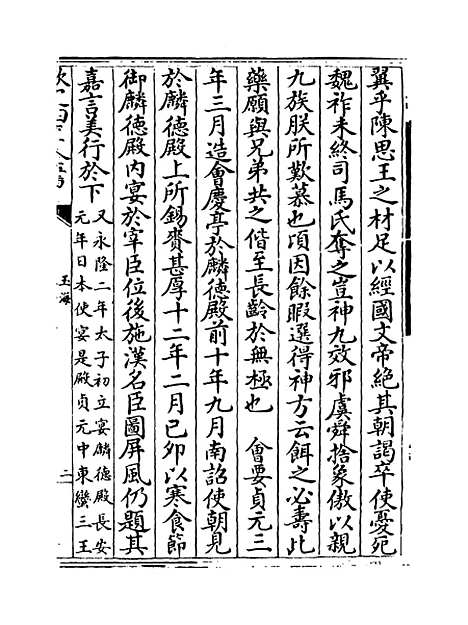 翼乎陳思王之材足以經國文帝絕其朝謁卒使憂死
魏祚未終司馬氏奪之豈神九效邪虞舜捨象傲以親
九族朕所歎慕也頃因餘暇選得神方云餌之必壽此
藥願與兄弟共之偕至長齡於無極也 會要貞元三
年三月造會慶亭於麟德殿前十年九月南詔使朝見
於麟德殿上所錫賚甚厚十二年二月已卯以寒食節
御麟德殿内宴於宰臣位後施漢名臣圖屏風仍題其
嘉言美行於下
又永隆二年太子初立宴麟德殿長安
元年日本使宴是殿貞元中東蠻三王
玉海
二